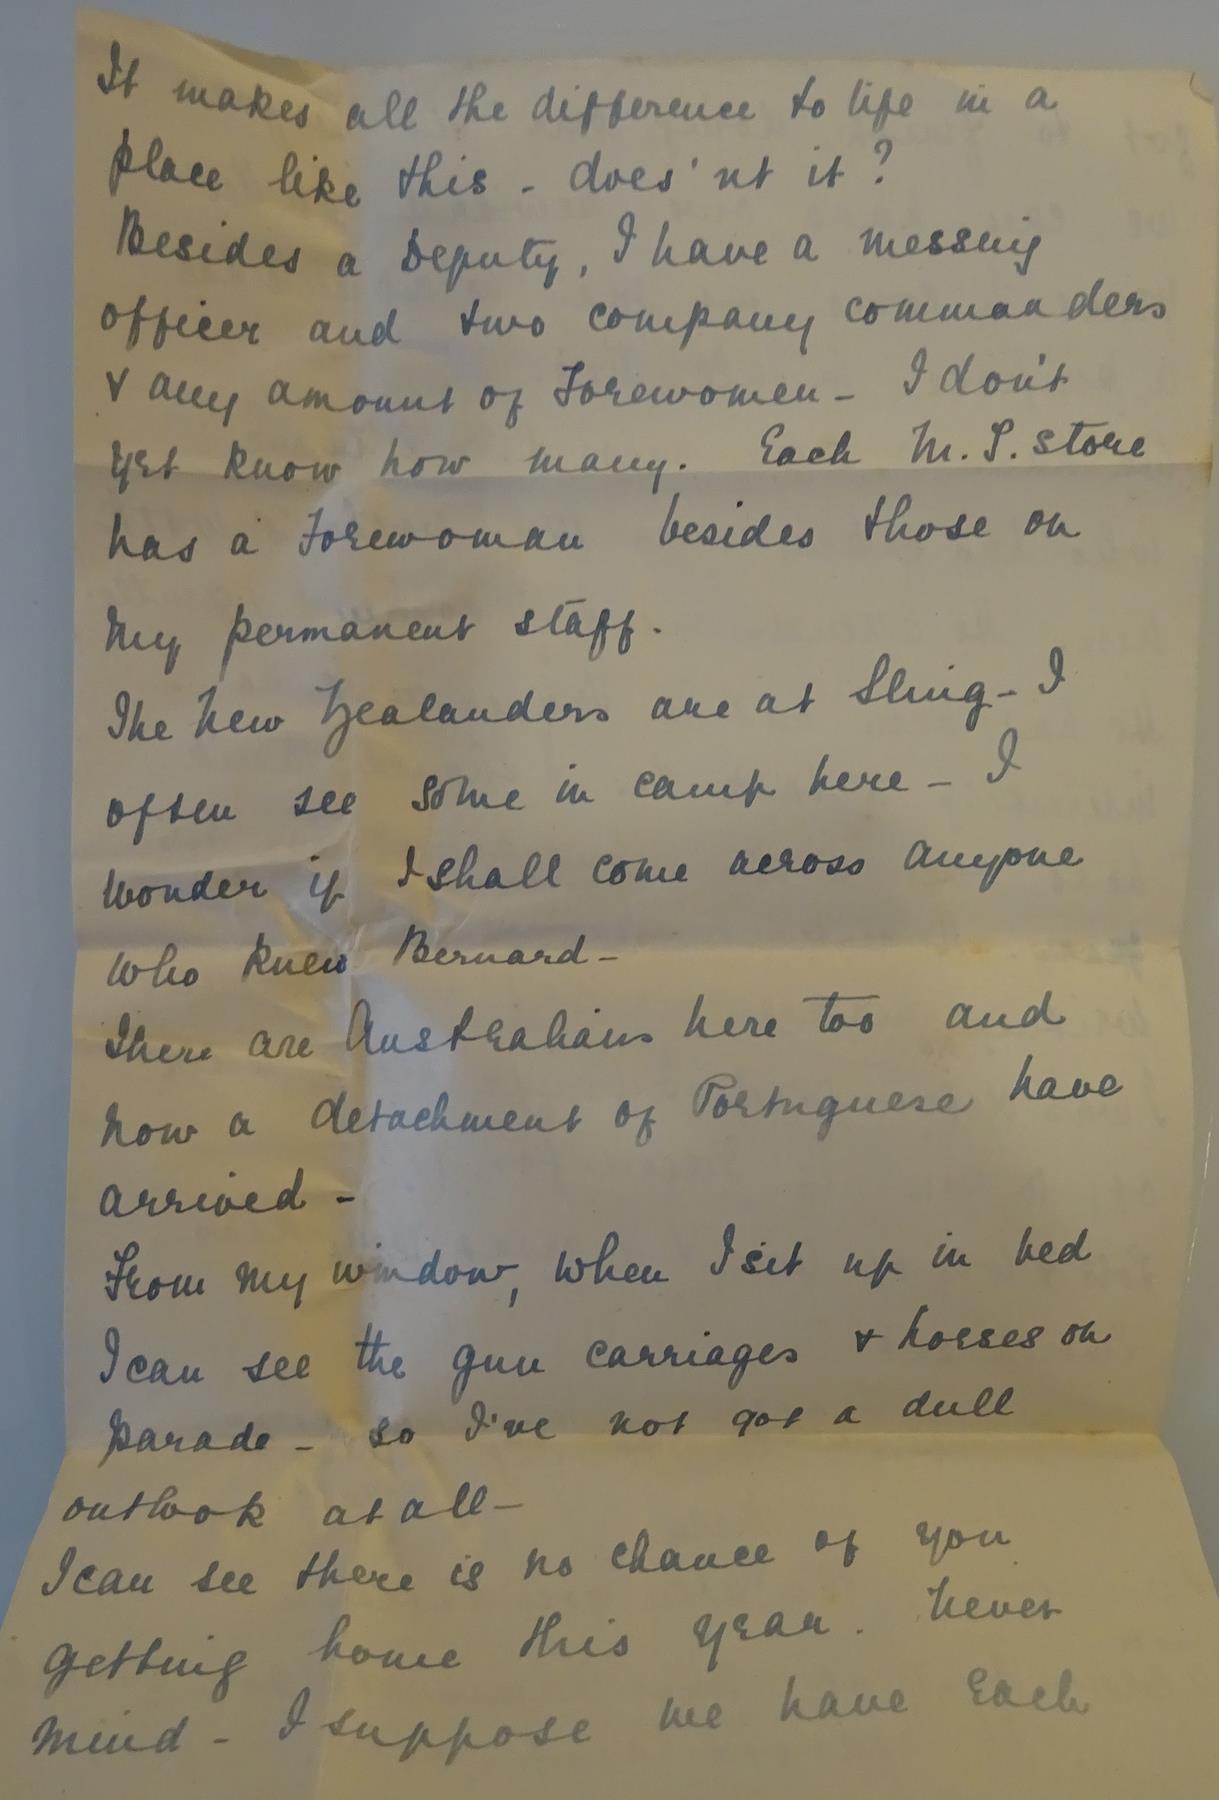 It makes all the difference to life in a
place like this - does'nt it?
Besides a Deputy, I have a messing
officer and two company commanders
& any amount of Forewomen - I don't
yet know how many. Each M.T. store
has a Forewoman besides those on
my permanent staff.
The New Zealanders are at Sling - I
often see some in camp here - I
wonder if I shall come across anyone
who knew Bernard -
There are Australians here too and
now a detachment of Portuguese have
arrived -
From my window, when I sit up in bed
I can see the gun carriages & horses on
parade - so I've not got a dull
outlook at all -
I can see there is no chance of you
getting home this year. Never
mind - I suppose we have each